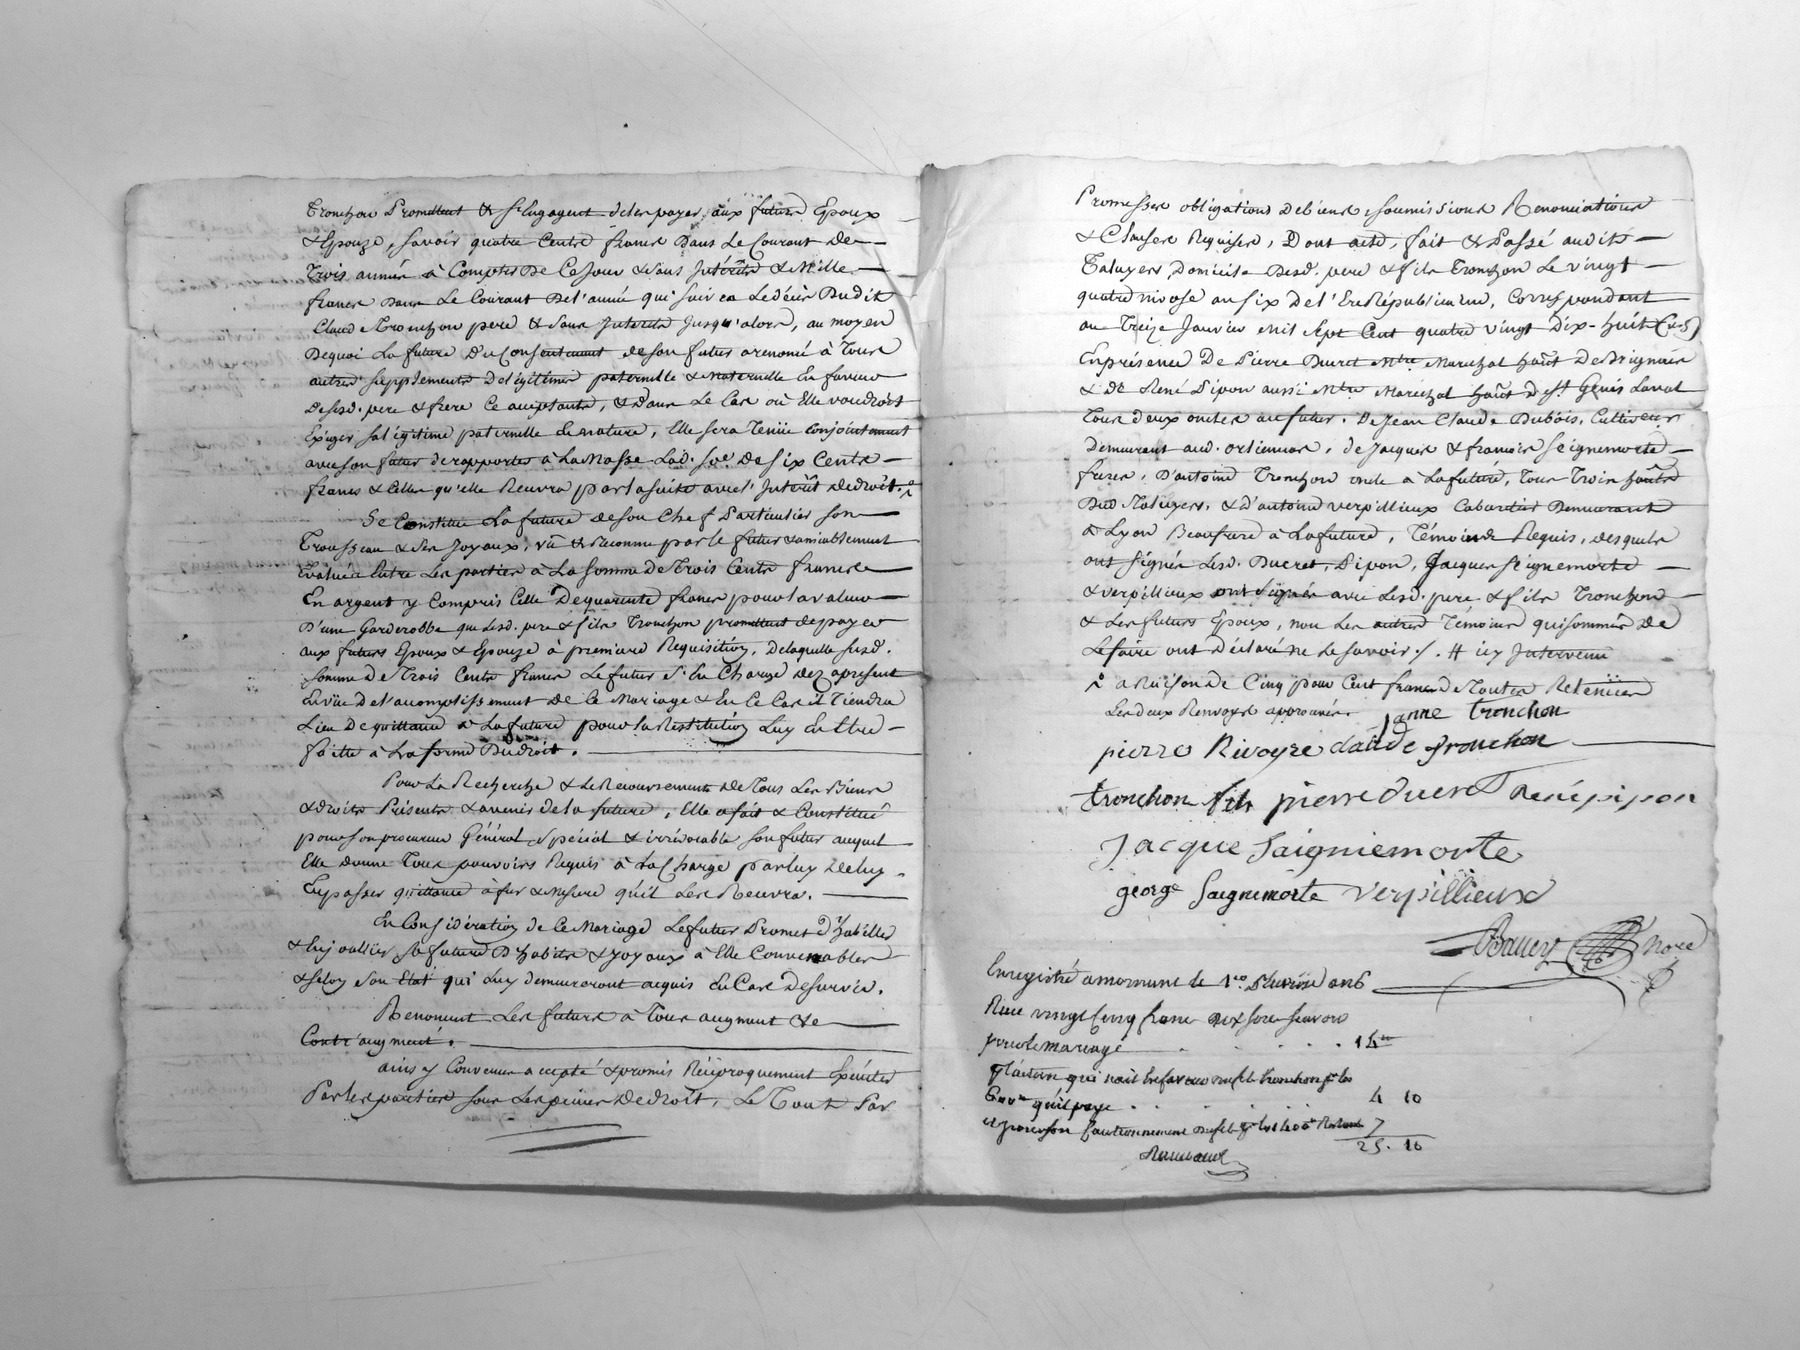 Tronchon Promettent & S'engagent de les payer aux futurs Epoux
& Epouze, savoir quatre Cents francs Dans Le Courant de
Trois années à Compter De Ce Jour & sans Intérêts & Mille
francs Dans Le Courant De l'année qui suivra Le décès Dudit
Claude Tronchon pere & sans Interets Jusqu'alors, au moyen
Dequoi La future Du Consentement de son futur a renoncé à Tous
autres supplements De légitimes paternelle & maternelle En faveur
Desd. pere & frere Ce acceptants, & dans Le Cas où Elle voudroit
Exiger sa légitime paternelle En nature, Elle sera Tenüe Conjointement
avec son futur de rapporter à La Masse Lad. so.e De six Cents
francs & Celles qu'elle Recevra par la suite avec l'Intérêt de droit.
Se Constitue La future de son Chef Particulier son
Trousseau & ses Joyaux, vû & Reconnu par le futur & amiablement
Evalués Entre Les parties à La somme de Trois Cents francs
En argent y Compris Celle De quarente francs pour la valeur
D'une Garderobbe que Lesd. pere & fils Tronchon promettent de payer
aux futurs Epoux & Epouze à premiere Requisition, De laquelle susd.
somme de Trois Cents francs Le futur s'En Charge dez apresent
En vüe de l'accomplissement de Ce Mariage & En Ce Cas il Tiendra
Lieu De quittance à La future pour la Restitution Luy En Etre
faitte à La forme Du droit.
Pour La Recherche & le Recouvrement de Tous Les Biens
& droits Présents & avenir de la future, Elle a fait & Constitué
pour son procureur Général Spécial & irrévocable son futur auquel
Elle donne Tous pouvoirs Requis à La Charge par luy de luy
En passer quittance à fur & mesure qu'il Les Recevra.
En Considération de Ce Mariage Le futur Promet D'habiller
& Enjoaillier sa future D'habits & Joyaux à Elle Convenables
& selon son Etat qui Luy demeureront acquis En Cas De survie.
Renoncent Les futurs à Tous augment & 
Contr'augment.
ainsy Convenu accepté & promis Réciproquement Exécuter
Par les parties sous Les peines De droit, Le Tout Par
Promesses obligations de biens, soumissions Renonciations
& Clauses Requises, Dont acte, fait & Passé audit
Taluyers, Domicile Desd. pere & fils Tronchon Le vingt
quatre nivose an six De l'Ere Républicaine, Correspondant
au Treize Janvier Mil Sept Cent quatre vingt Dix-huit (v.s.)
En présence De Pierre Ducret M.tre Marechal hañt De Brignais
& de René Pipon aussi M.tre Marechal hañt de S.t Genis Laval
Tous deux oncles au futur. De Jean Claude Dubois, Cultivateur
Demeurant aud. orlienas, de Jacques & francois Seignemorte
freres, D'antoine Tronchon oncle à La future, Tous Trois hañts
Dud. Taluyers, & d'antoine verpillieux Cabaretier Demeurant
à Lyon Beaufrere à La future, Témoins Requis, desquels
ont signés Lesd. Ducret, Pipon, Jacques Seignemorte
& verpillieux ont signés avec Lesd. pere & fils Tronchon
& Les futurs Epoux, non Les autres Témoins qui sommés De
Le faire ont déclaré ne Le savoir ./. # icy Intervenu
à Raison de Cinq pour Cent francs de Toutes Retenües
Les deux Renvoys approuvés. janne tronchon
pierre Rivoyre claude tronchon
tronchon fils pierre ducret René pipon
Jacque Saigniemorte
george Saignemorte verpillieux
Enregistré a mornant le 1.er Pluviose an 6
Recu vingt Cinq franc dix sous savoir
pour le mariage 14
4 10
7
25. 10